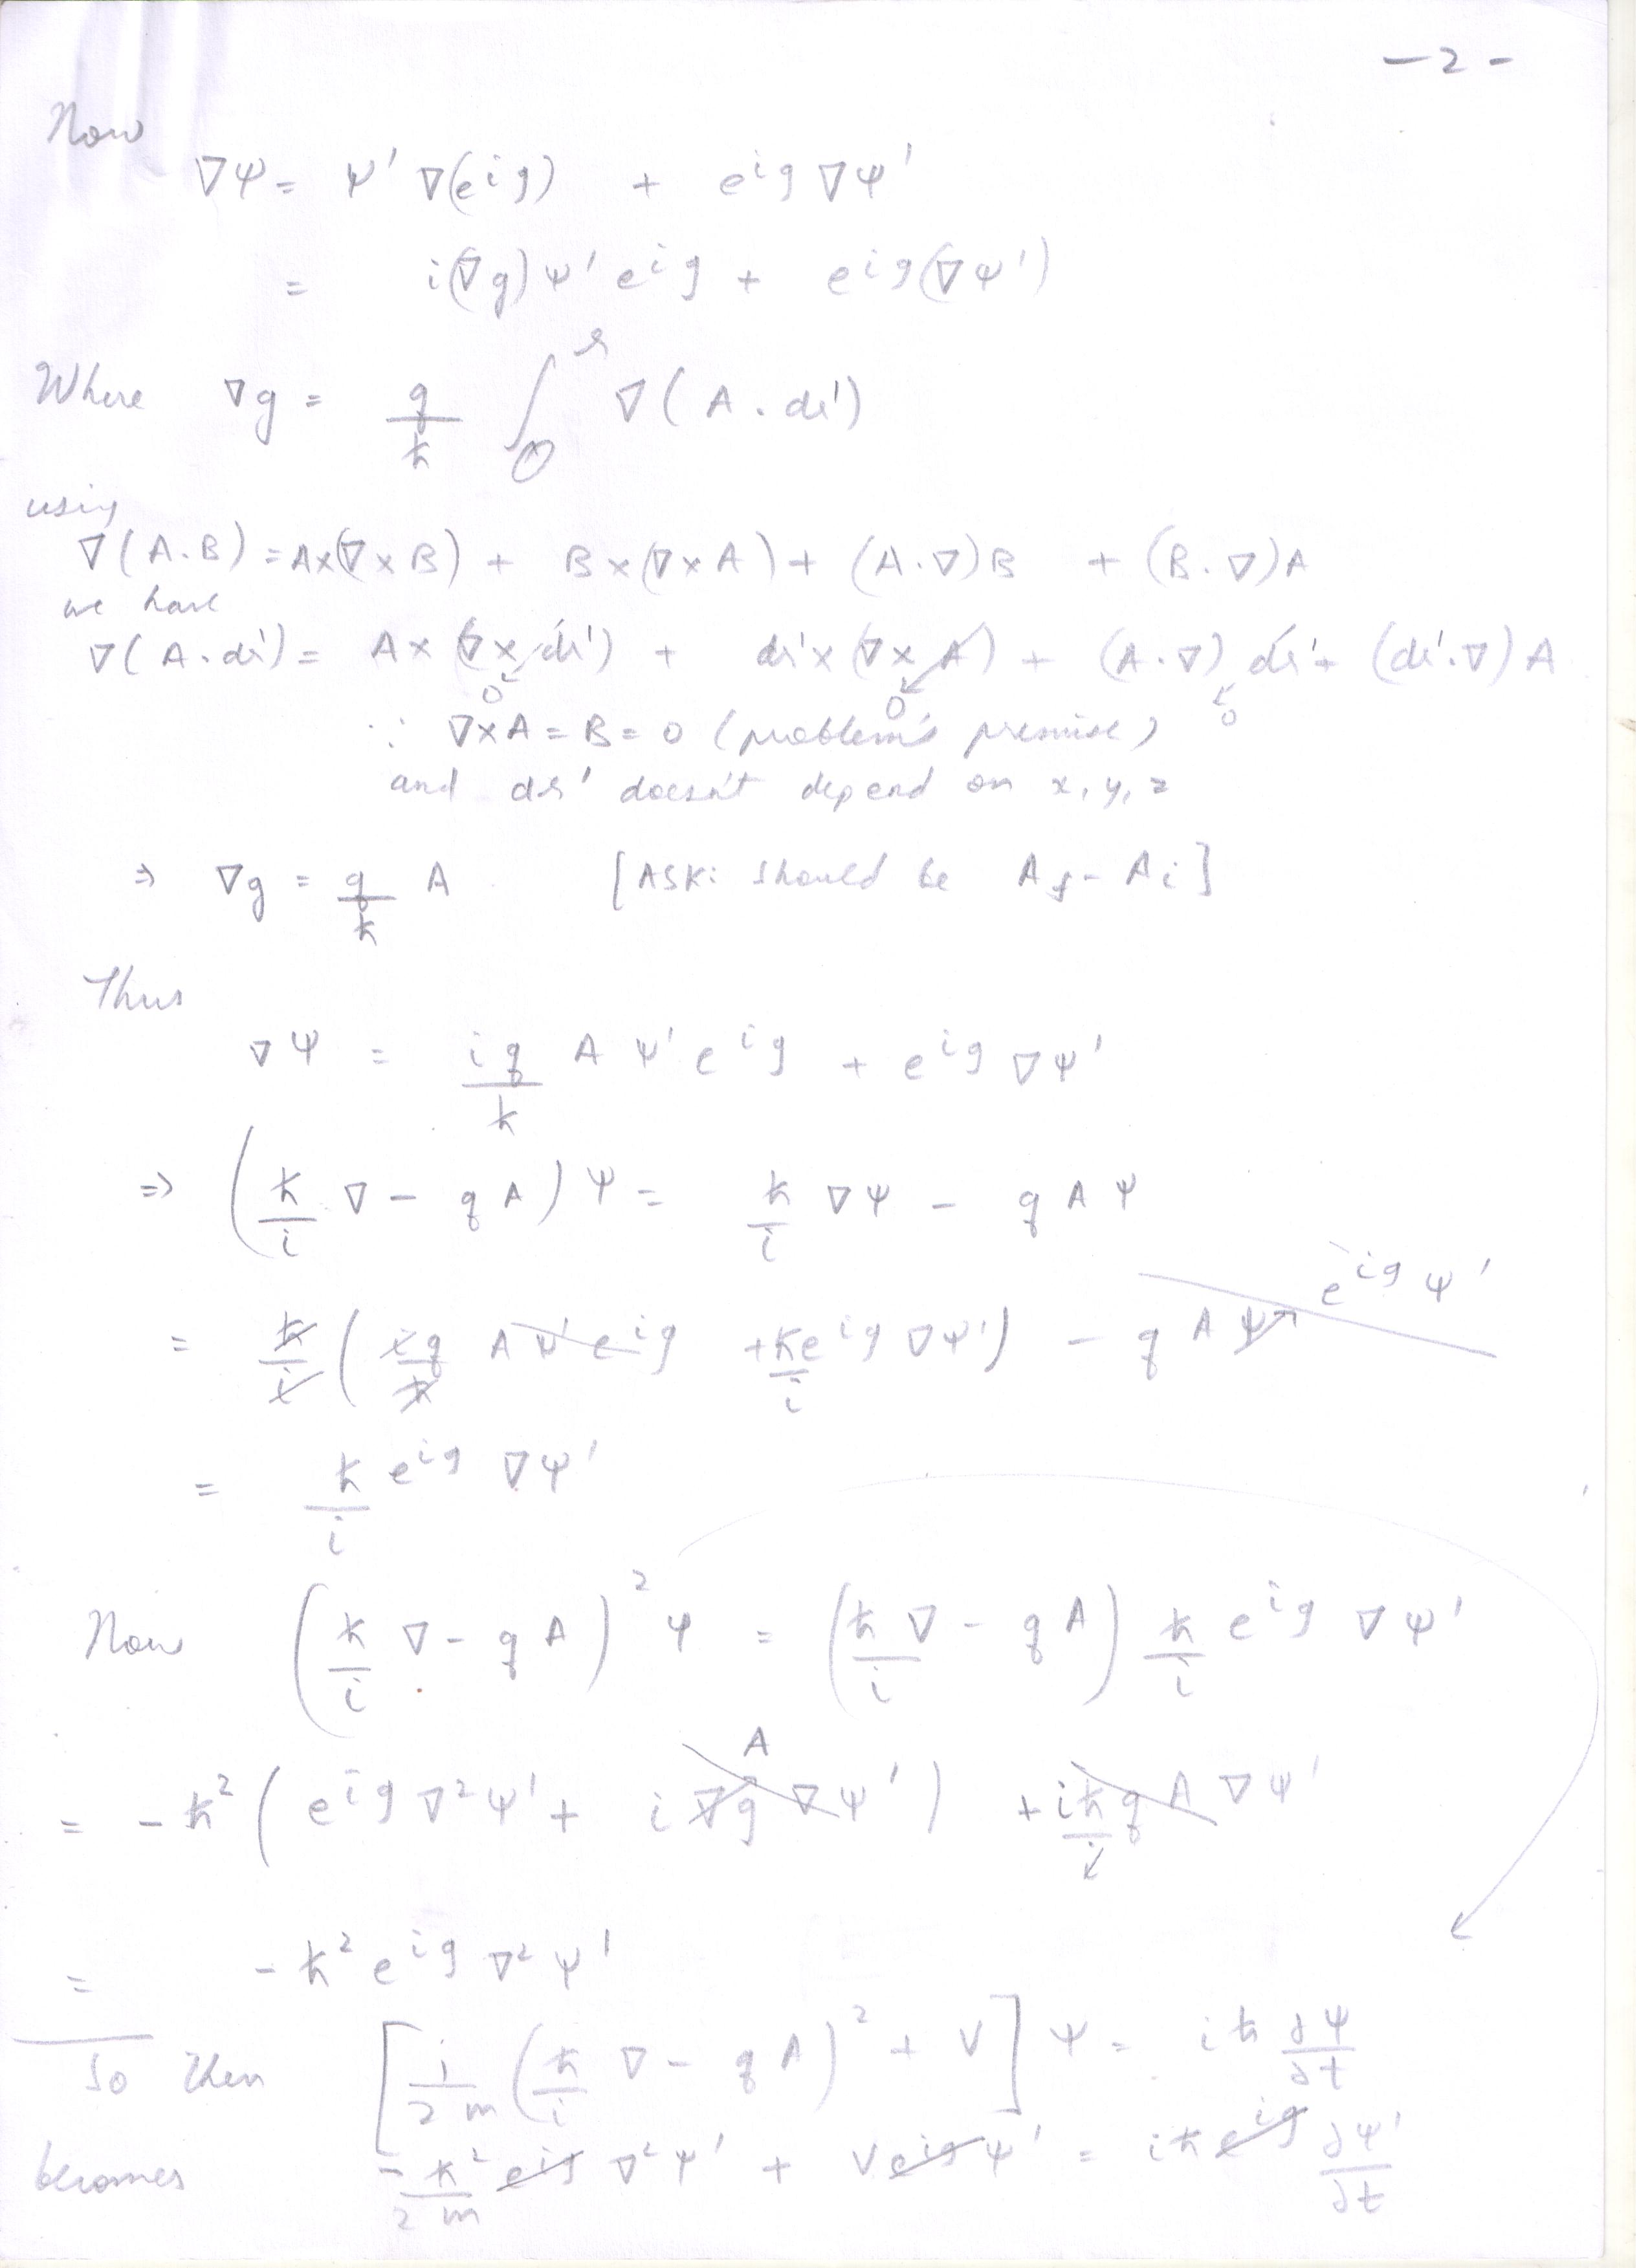 - 2 -
Now
∇Ψ = Ψ' ∇(e^{ig}) + e^{ig} ∇Ψ'
= i(∇g) Ψ' e^{ig} + e^{ig} (∇Ψ')
Where ∇g = q/ħ ∫_O^r ∇(A . dr')
using
∇(A.B) = A×(∇×B) + B×(∇×A) + (A.∇)B + (B.∇)A
we have
∇(A.dr') = A×(∇×dr') + dr'×(∇×A) + (A.∇) dr' + (dr'.∇)A
0 0 0
∵ ∇×A = B = 0 (problem's premise)
and dr' doesn't depend on x, y, z
⇒ ∇g = q/ħ A [ASK: should be A_f - A_i]
Thus
∇Ψ = iq/ħ A Ψ' e^{ig} + e^{ig} ∇Ψ'
⇒ (ħ/i ∇ - qA) Ψ = ħ/i ∇Ψ - qAΨ
e^{ig} Ψ'
= ħ/i (iq/ħ A Ψ' e^{ig} + ħ/i e^{ig} ∇Ψ') - qAΨ
= ħ/i e^{ig} ∇Ψ'
Now (ħ/i ∇ - qA)^2 Ψ = (ħ/i ∇ - qA) ħ/i e^{ig} ∇Ψ'
A
= -ħ^2 (e^{ig} ∇^2 Ψ' + i ∇g ∇Ψ') + iħ/i q A ∇Ψ'
= -ħ^2 e^{ig} ∇^2 Ψ'
So then [1/2m (ħ/i ∇ - qA)^2 + V] Ψ = iħ ∂Ψ/∂t
becomes -ħ^2/2m e^{ig} ∇^2 Ψ' + V e^{ig} Ψ' = iħ e^{ig} ∂Ψ'/∂t